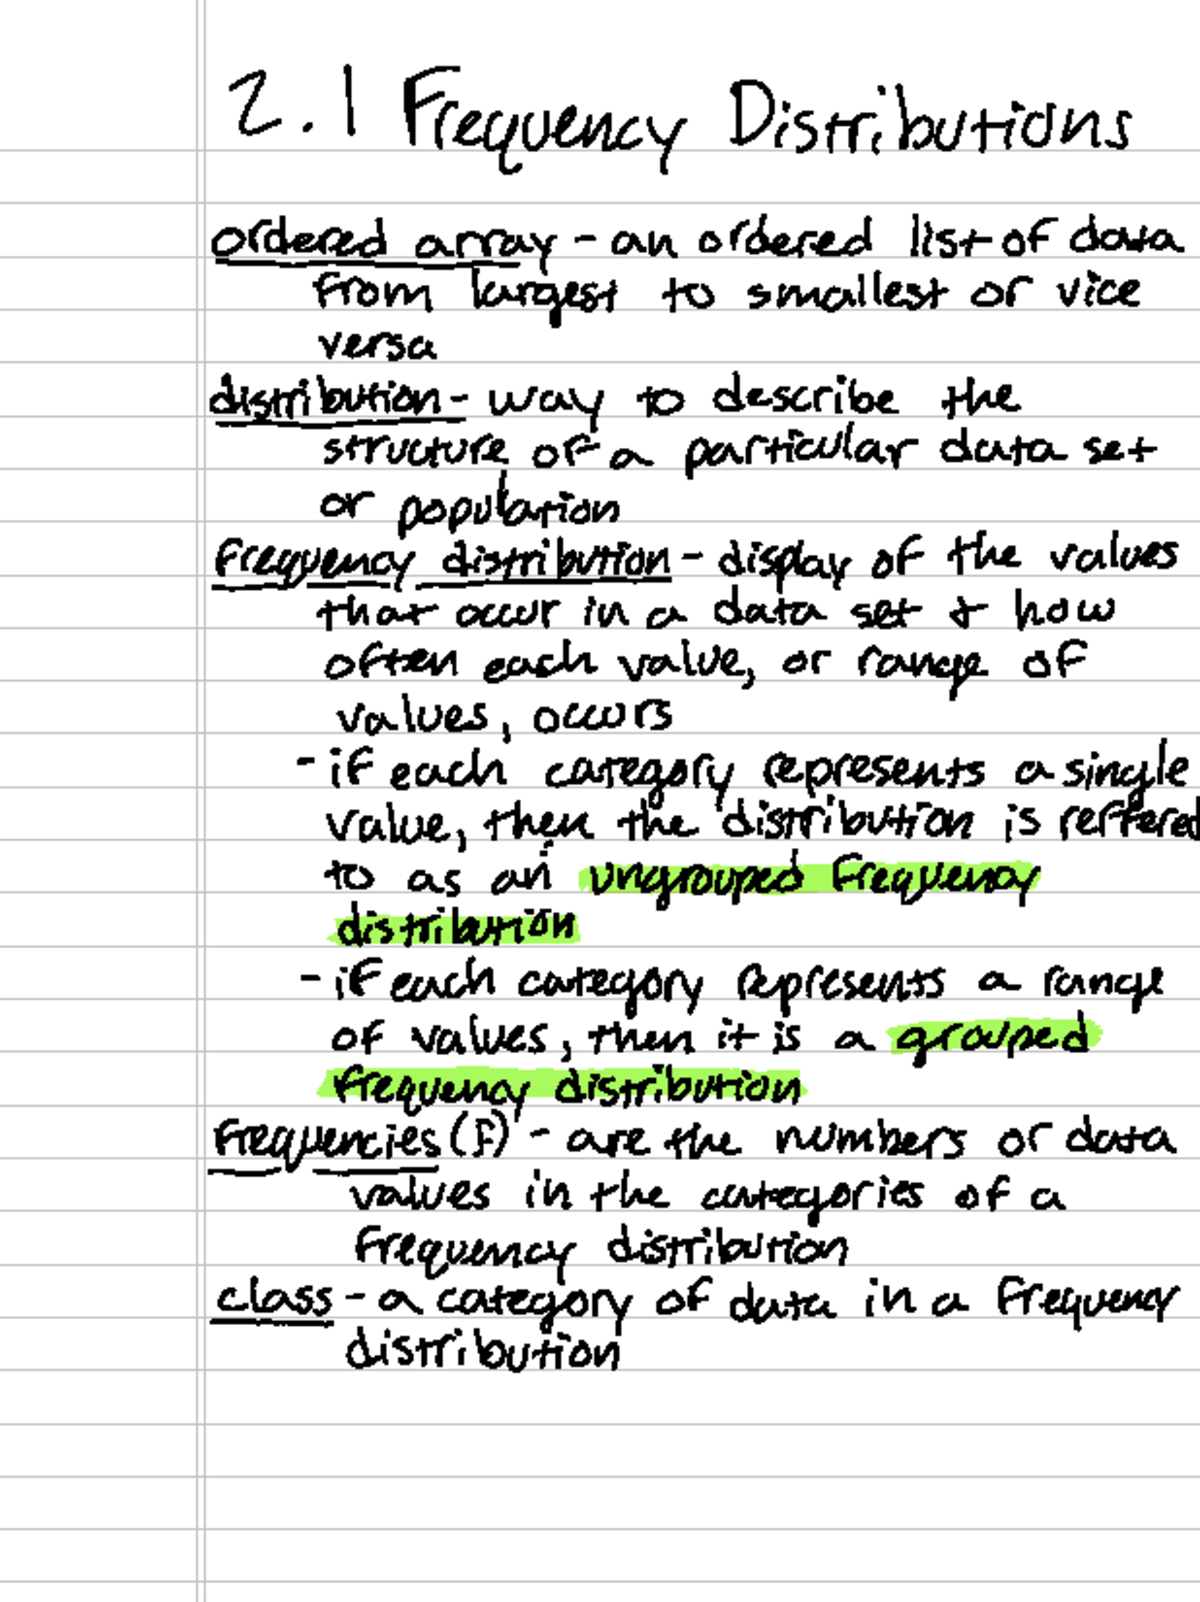 2.1 Frequency Distributions
ordered array - an ordered list of data
from largest to smallest or vice
versa
distribution - way to describe the
structure of a particular data set
or population
frequency distribution - display of the values
that occur in a data set & how
often each value, or range of
values, occurs
- if each category represents a single
value, then the distribution is reffered
to as an ungrouped frequency
distribution
- if each category represents a range
of values, then it is a grouped
frequency distribution
Frequencies (F) - are the numbers or data
values in the categories of a
frequency distribution
class - a category of data in a frequency
distribution